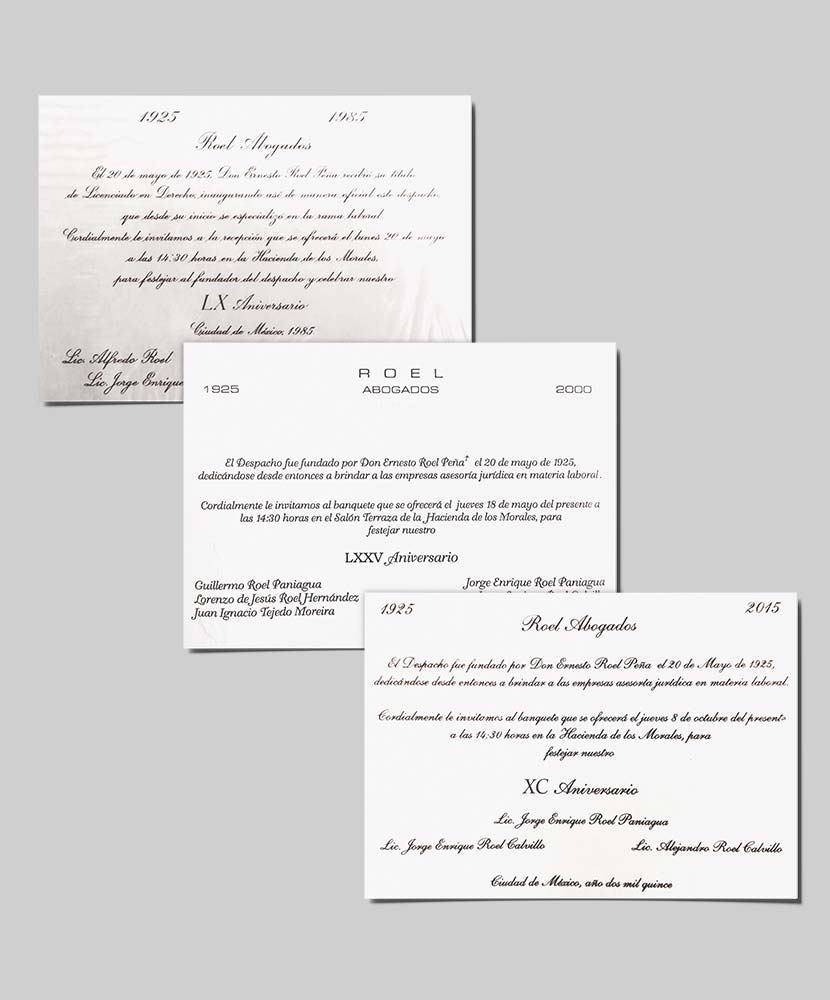 1925 1985
Roel Abogados
El 20 de mayo de 1925, Don Ernesto Roel Peña recibió su título
de Licenciado en Derecho, inaugurando así de manera oficial este despacho,
que desde su inicio se especializó en la rama laboral.
Cordialmente le invitamos a la recepción que se ofrecerá el lunes 20 de mayo
a las 14:30 horas en la Hacienda de los Morales,
para festejar al fundador del despacho y celebrar nuestro
LX Aniversario
Ciudad de México, 1985.
Lic. Alfredo Roel
Lic. Jorge Enrique
ROEL
1925 ABOGADOS 2000
El Despacho fue fundado por Don Ernesto Roel Peña† el 20 de mayo de 1925,
dedicándose desde entonces a brindar a las empresas asesoría jurídica en materia laboral.
Cordialmente le invitamos al banquete que se ofrecerá el jueves 18 de mayo del presente a
las 14:30 horas en el Salón Terraza de la Hacienda de los Morales, para
festejar nuestro
LXXV Aniversario
Guillermo Roel Paniagua Jorge Enrique Roel Paniagua
Lorenzo de Jesús Roel Hernández
Juan Ignacio Tejedo Moreira
1925 2015
Roel Abogados
El Despacho fue fundado por Don Ernesto Roel Peña el 20 de Mayo de 1925,
dedicándose desde entonces a brindar a las empresas asesoría jurídica en materia laboral.
Cordialmente le invitamos al banquete que se ofrecerá el jueves 8 de octubre del presente
a las 14:30 horas en la Hacienda de los Morales, para
festejar nuestro
XC Aniversario
Lic. Jorge Enrique Roel Paniagua
Lic. Jorge Enrique Roel Calvillo Lic. Alejandro Roel Calvillo
Ciudad de México, año dos mil quince